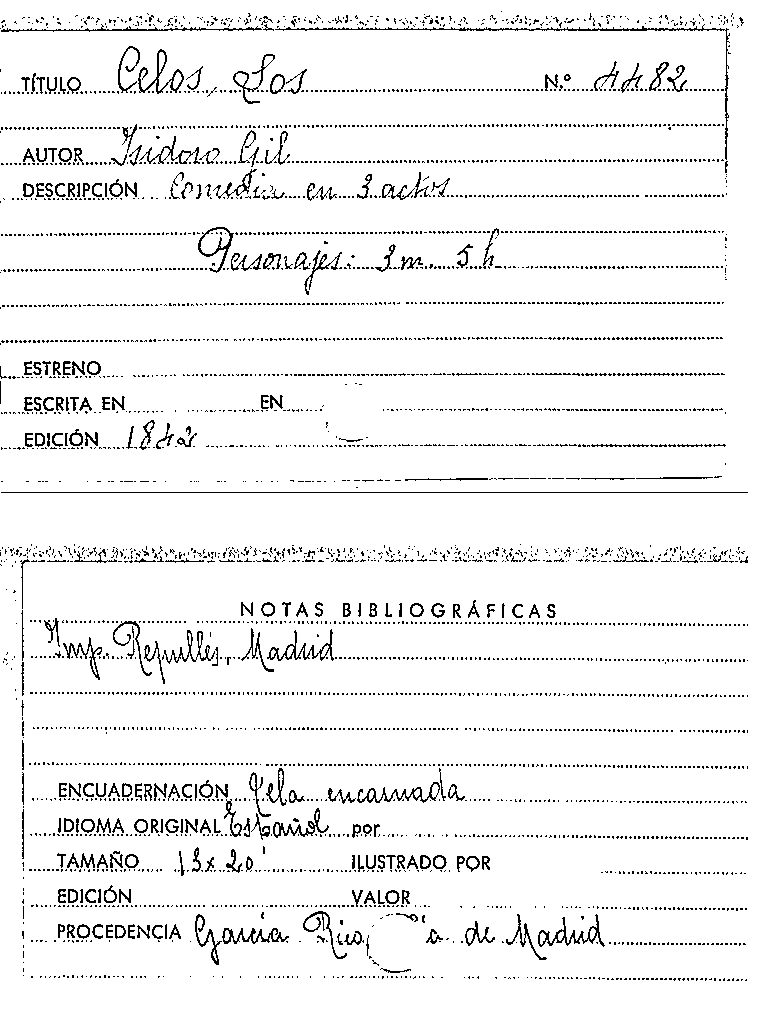 TÍTULO Celos, Los N.º 4482
AUTOR Isidoro Gil
DESCRIPCIÓN Comedia en 3 actos
Personajes: 3 m. 5 h
ESTRENO
ESCRITA EN EN
EDICIÓN 1842
NOTAS BIBLIOGRÁFICAS
Imp. Repullés, Madrid
ENCUADERNACIÓN Tela encarnada
IDIOMA ORIGINAL Español por
TAMAÑO 13 x 20
ILUSTRADO POR
EDICIÓN VALOR
PROCEDENCIA García Rico, de Madrid